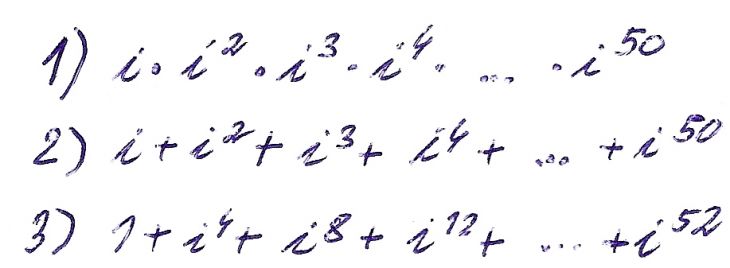 1) i · i² · i³ · i⁴ · ... · i⁵⁰
2) i + i² + i³ + i⁴ + ... + i⁵⁰
3) 1 + i⁴ + i⁸ + i¹² + ... + i⁵²